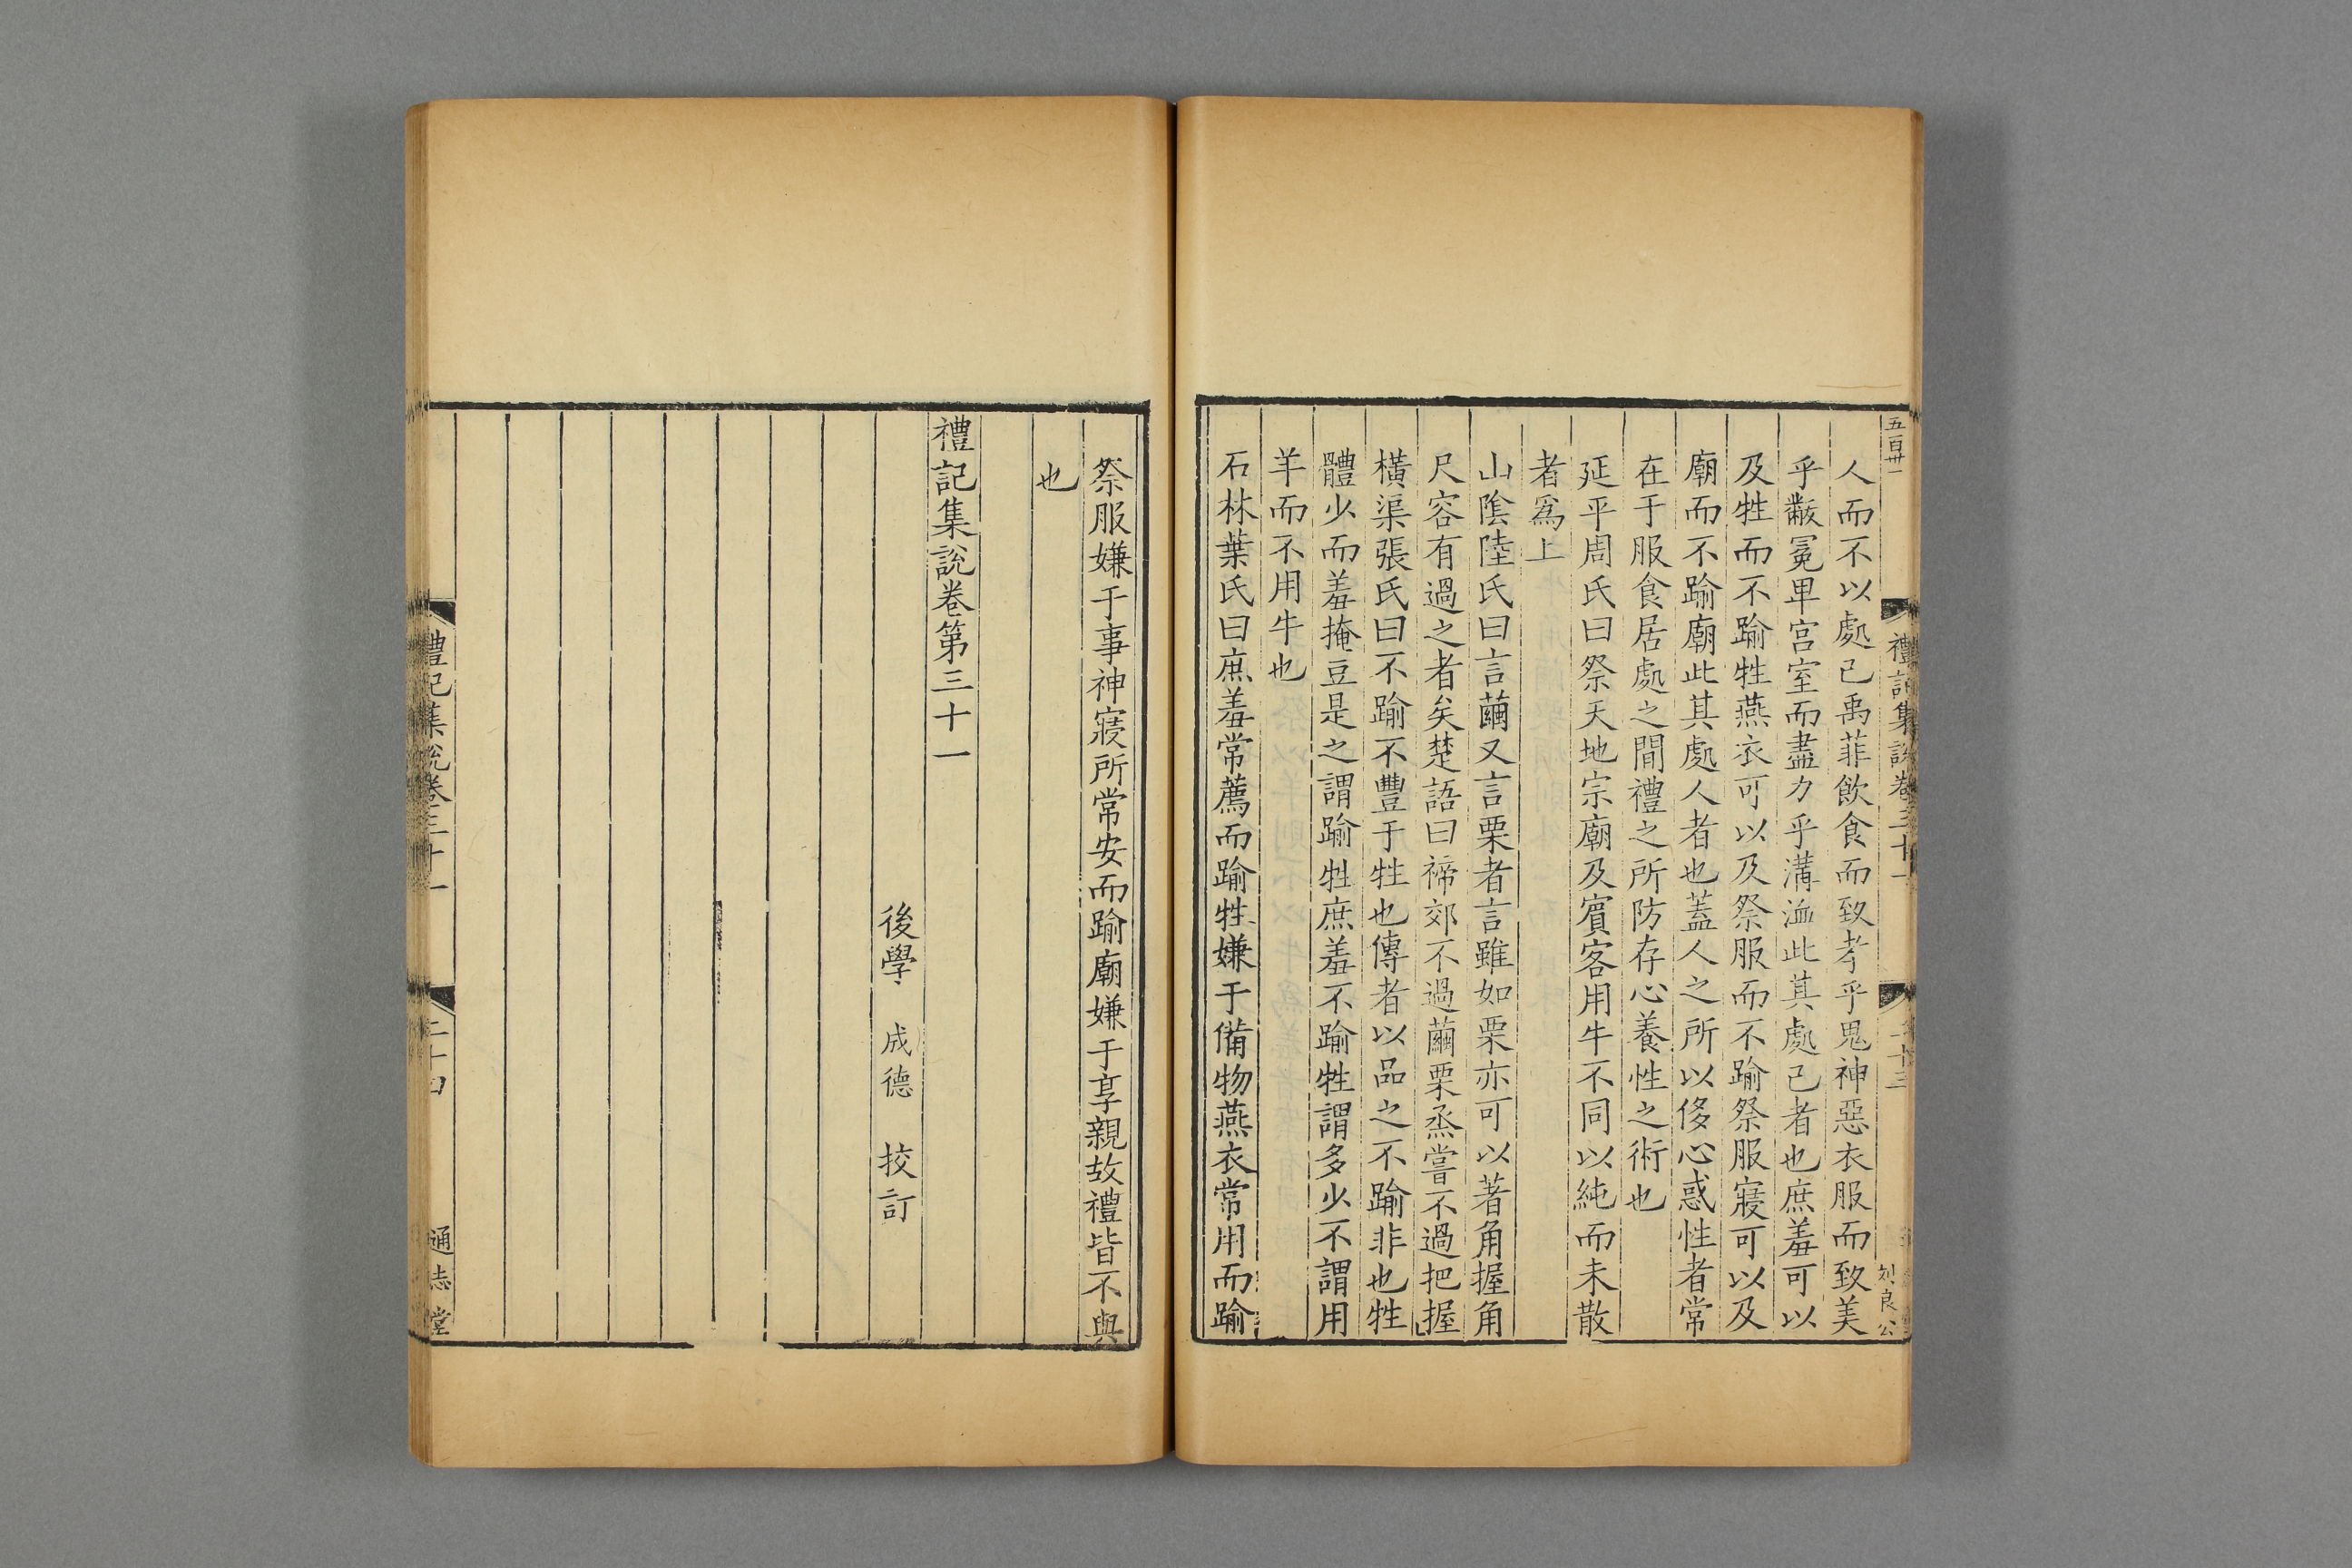 五百卅一
禮記集說卷三十一
二十三
刘良公
人而不以處己禹菲飲食而致孝乎鬼神惡衣服而致美
乎黻冕卑宫室而盡力乎溝洫此其處己者也庶羞可以
及牲而不踰牲燕衣可以及祭服而不踰祭服寢可以及
廟而不踰廟此其處人者也蓋人之所以侈心惑性者常
在于服食居處之間禮之所防存心養性之術也
延平周氏曰祭天地宗廟及賓客用牛不同以純而未散
者爲上
山陰陸氏曰言繭又言栗者言雖如栗亦可以著角握角
尺容有過之者矣楚語曰禘郊不過繭栗烝嘗不過把握
橫渠張氏曰不踰不豐于牲也傳者以品之不踰非也牲
體少而羞掩豆是之謂踰牲庶羞不踰牲謂多少不謂用
羊而不用牛也
石林葉氏曰庶羞常薦而踰牲嫌于備物燕衣常用而踰
祭服嫌于事神寢所常安而踰廟嫌于享親故禮皆不與
也
禮記集說卷第三十一
後學 成德 挍訂
禮記集說卷三十一
二十四
通志堂